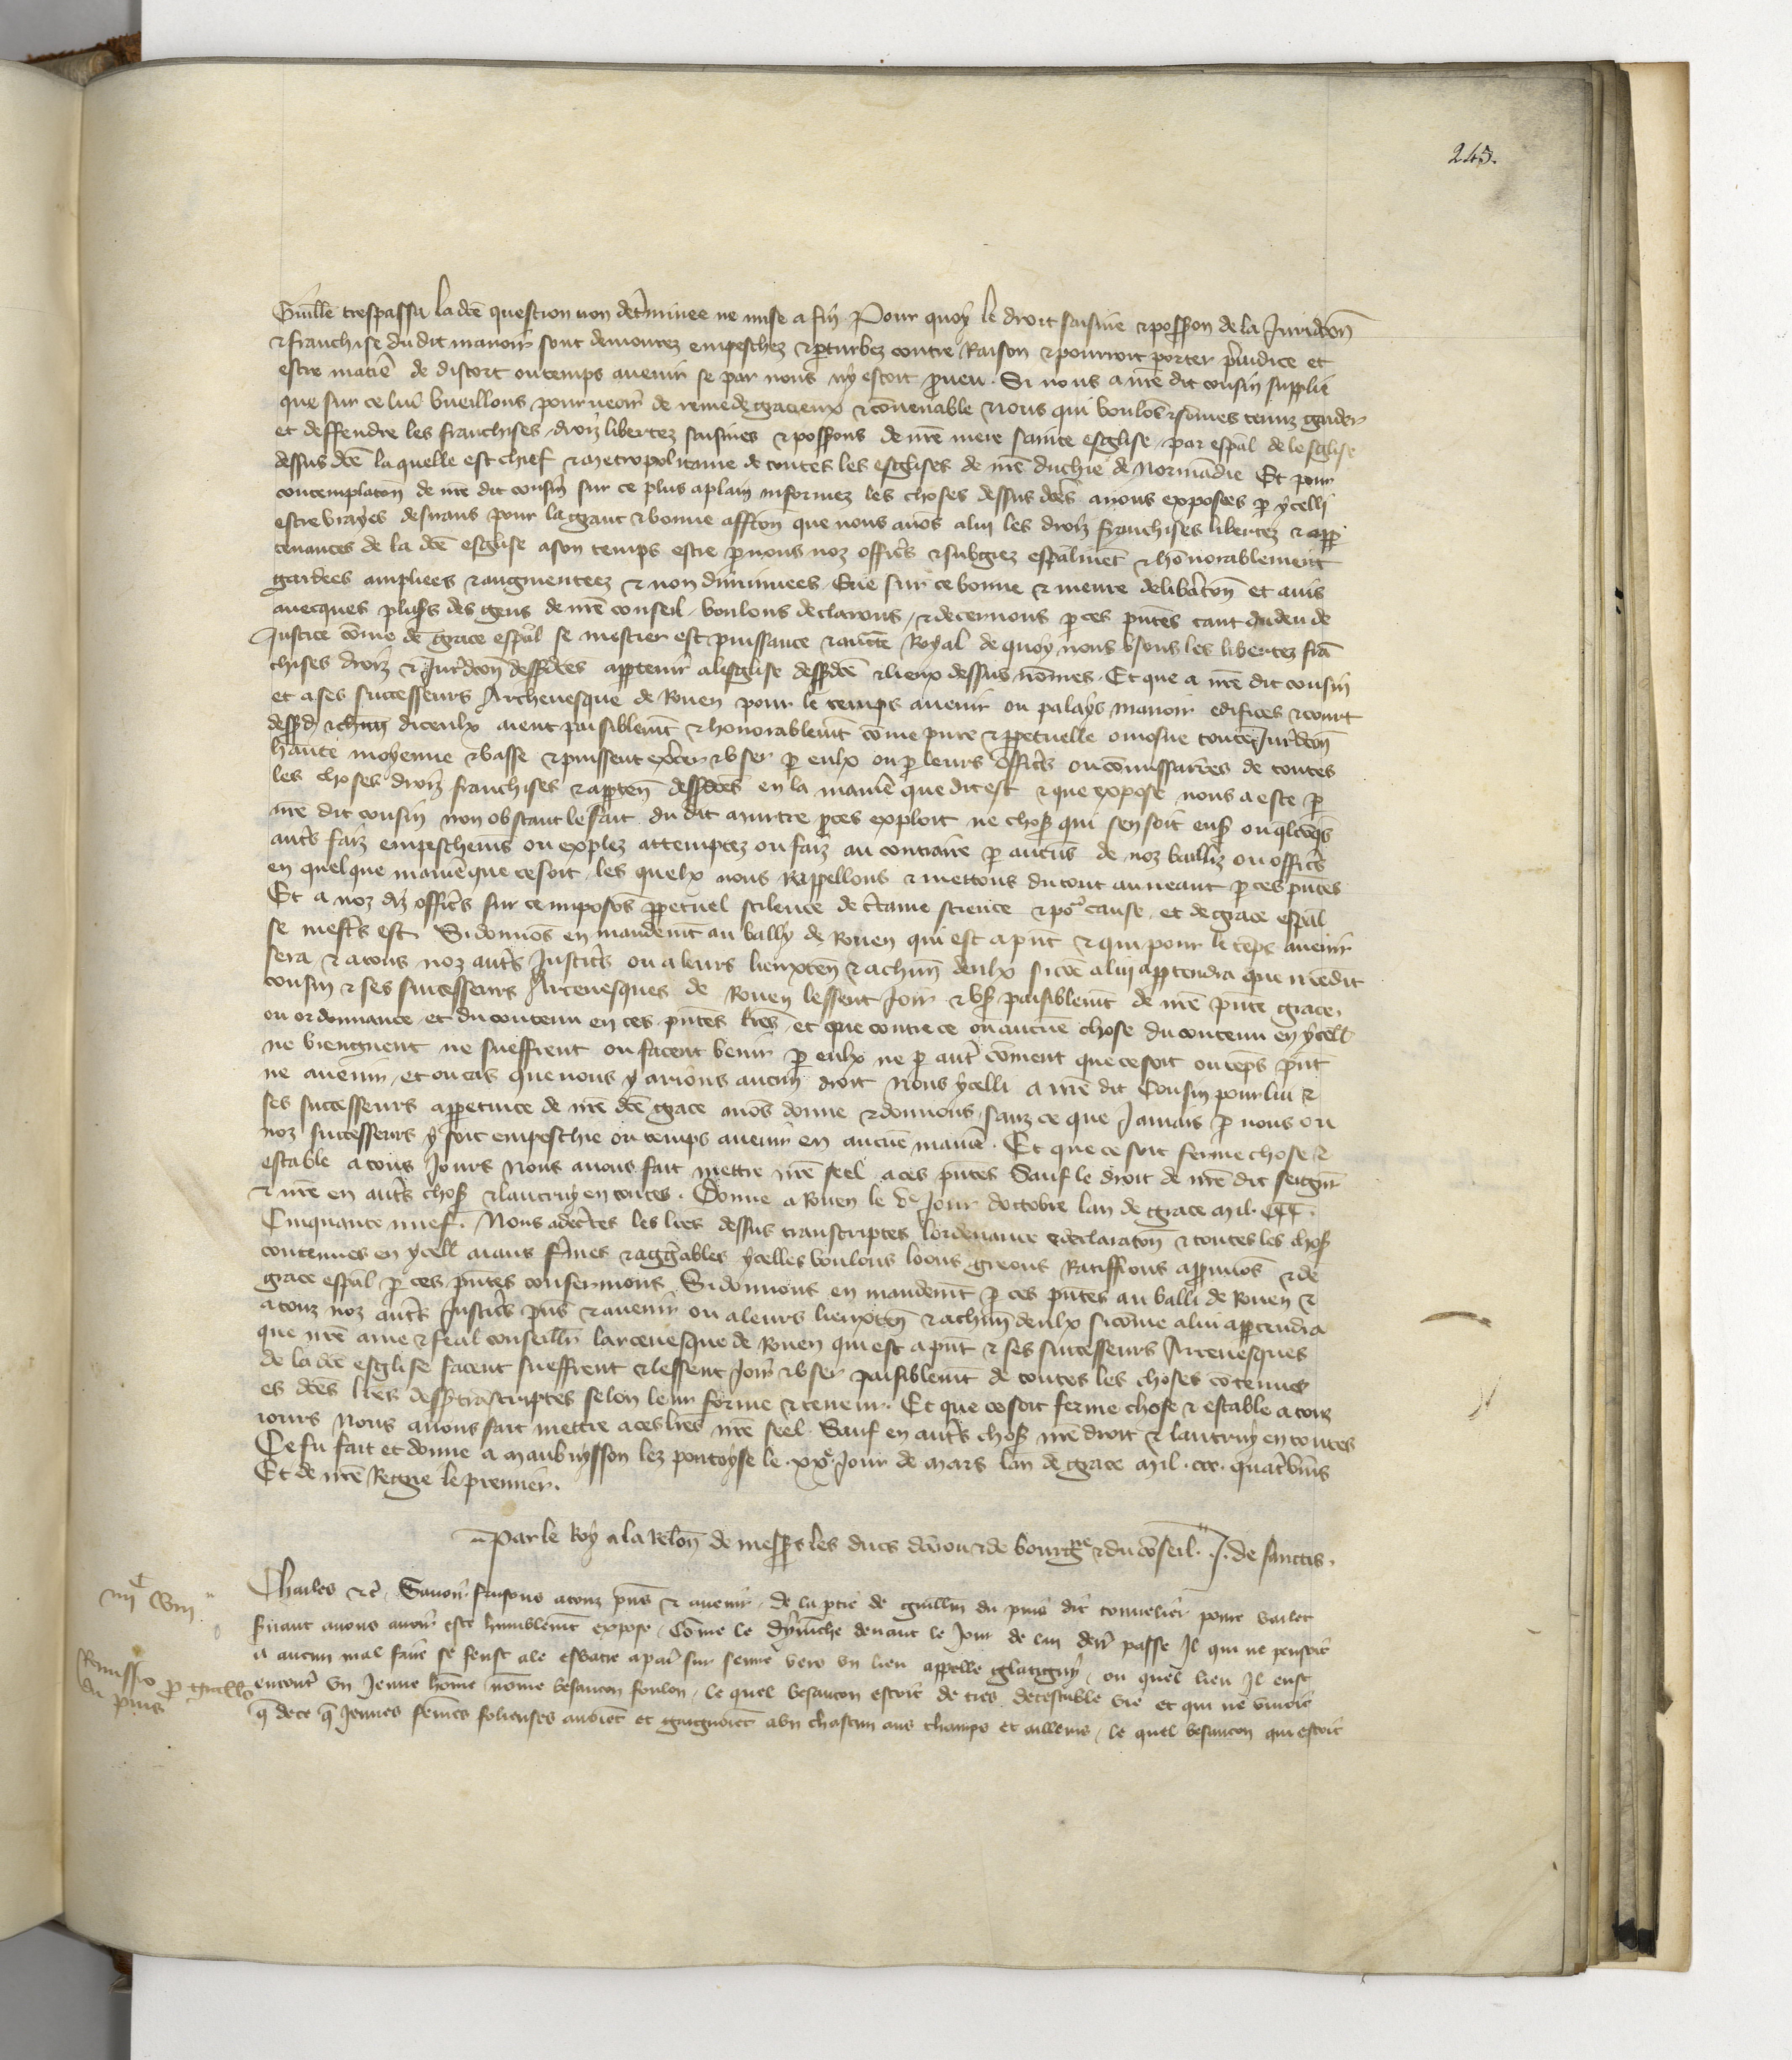 243.
Guillē trespassa la dcē question non det̄minee ne mise a fin Pour quoy le droit saisine & possion de la Juridcōn
& franchise du dit manoir sont demourez empeschez & p̄turbez contre Raison & pourroit porter p̄iudice et
estre matiē de discort ou temps auenir se par nous ny estoit p̄ueu. Si nous a nrē dit cousin supplie
que sur ce lui vueillons pourueoir de remede gracieux & conuenable Nous qui voulōs & sōmes tenuz garder
et deffendre les franchises droiz libertez saisines & possions de nrē mere saincte esglise par esp̄al de lesglise
dessus dcē la quelle est chief & metropolitaine de toutes les esglises de nrē duchie de Normādie Et pour
contemplatōn de nrē dit cousin sur ce plus aplain informez les choses dessus dcēs auons exposees p ycelli
estre vrayes desirans pour la grant & bonne affcōn que nous auōs a lui les droiz franchises libertez & app
tenances de la dcē esglise a son temps estre p nous noz offic̄s & subgiez esp̄alment & hōnorablement
gardees ampliees & augmentees & non diminuees Eue sur ce bonne & meure delibātōn et auis
auecques plus̄s des gens de nrē conseil voulons declarons & decernons p ces pn̄tes tant du deu de
Justice cōme de grace esp̄al se mestier est puissance & auctē Royal de quoy nous vsons les libertez frā
chises droiz & Jur̄dcōn dessdcēs app̄tenir a lesglise dessdcē & lieux dessus nōmes. Et que a nrē dit cousin
et a ses successeurs Archeuesque de Rouen pour le temps auenir ou palays manoir edifices & court
dessd & chūn diceulx aient paisiblemt̄ & honorablemt̄ cōme pure & ppetuelle omosne toute Jur̄dcōn
haute moyenne & basse & puissent exc̄er & vser p eulx ou p leurs offic̄s ou cōmissaires de toutes
les choses droiz franchises & appten̄ dessdcēs en la maniē que dit est & que expose nous a este p
nrē dit cousin non obstant le fait du dit murtre pces exploit ne chos̄ qui sen soit ens̄ ou qlcōqs̄
aut̄s faiz empeschemēs ou explez attemptez ou faiz au contraire p aucuns de noz bailliz ou offic̄s
en quelque maniē que ce soit les quelx nous Rappellons & mettons du tout au neant p ces pn̄tes
Et a noz diz offic̄s sur ce imposōs ppetuel scilence de c̄taine science & po cause et de grace esp̄al
se mest̄s est. Si donnōs en mandemt̄ au bailly de Rouen qui est a pn̄t & qui pour le tēps auenir
sera & a tous noz aut̄s Justic̄s ou a leurs lieuxten̄ & a chūn deulx si cōe a lui app̄tendra que nrē dit
cousin & ses successeurs Arceuesques de Rouen lessent Joir & vs̄ paisiblemt̄ de nrē pn̄te grace
ou ordonnance et du contenu en ces pn̄tes lrēs et que contre ce ou aucune chose du contenu en ycell̄
ne viengnent ne sueffrent ou facent venir p eulx ne p aut̄ cōment que ce soit ou tēps pn̄t
ne auenir et ou cas que nous y arions aucun droit Nous ycelli a nrē dit Cousin pour lui &
ses successeurs a ppetuite de nrē dcē grace auōs donne & donnons sanz ce que Jamais p nous ou
noz successeurs y soit empeschie ou temps auenir en aucūe maniē. Et que ce soit ferme chose &
estable a tous Jours Nous auons fait mettre nrē seel a ces pn̄tes Sauf le droit de nrē dit seignr̄
& nrē en aut̄s chos̄ & lautruy en toutes. Donne a Rouen le ve Jour doctobre lan de grace mil. CCC.
Cinquante nuef. Nous adec̄tes les lrēs dessus transcriptes lordenance & declaratōn & toutes les chos̄
contenues en ycell̄ aians f̄mes & agḡables ycelles voulons loons greons Ratiffions app̄uuōs & de
grace esp̄al p ces pn̄tes confermons Si donnons en mandemt̄ p ces pn̄tes au bailli de Rouen &
a touz noz aut̄s Justic̄s pn̄s & auenir ou a leurs lieuxten̄ & a chūn deulx si cōme a lui app̄tendra
que nrē ame & feal conseill̄r larceuesque de Rouen qui est a pn̄t & ses successeurs Arceuesques
de la dcē esglise facent sueffrent & lessent Joir & vser paisiblemt̄ de toutes les choses cōtenues
es dcēs lrēs dess̄ trāscriptes selon leur forme & teneur. Et que ce soit ferme chose & estable a touz
iours Nous auons fait mettre a ces lrēs nrē seel. Sauf en aut̄s chos̄ nrē droit & lautruy en toutes
Ce fu fait et donne a Maubuysson lez pontoyse le .xxe. Jour de mars lan de grace mil .ccc. quat̄vīns
Et de nrē Regne le premier.
Par le Roy a la Relōn de mess̄rs les ducs dāiou & de bourgne & du cōseil. J. de sanctis.
iiijc viij
Charles &c̄ Sauoir faisons a touz pn̄s & auenir de la p̄tie de guill̄m du puis dit tonnelier poure vallet
s̄uant auons auoir este humblemt̄ expose Cōme le dymēche deuant le Jour de lan derr̄ passe Il qui ne pensoit
a aucun mal faire se feust ale esbatre a paris sur seine vers vn lieu appelle glatigny, ou quel lieu Il eust
Remissio p guillo
du puis
encontr̄ vn Jeune hōme nōme besancon foulon, le quel besancon estoit de tres detestable vie et qui ne viuoit
q̄ de ce q̄ Jeunes fēmes folieuses auoiēt et gaignoiēt a vn chascun aus champs et ailleurs, le quel besancon qui estoit